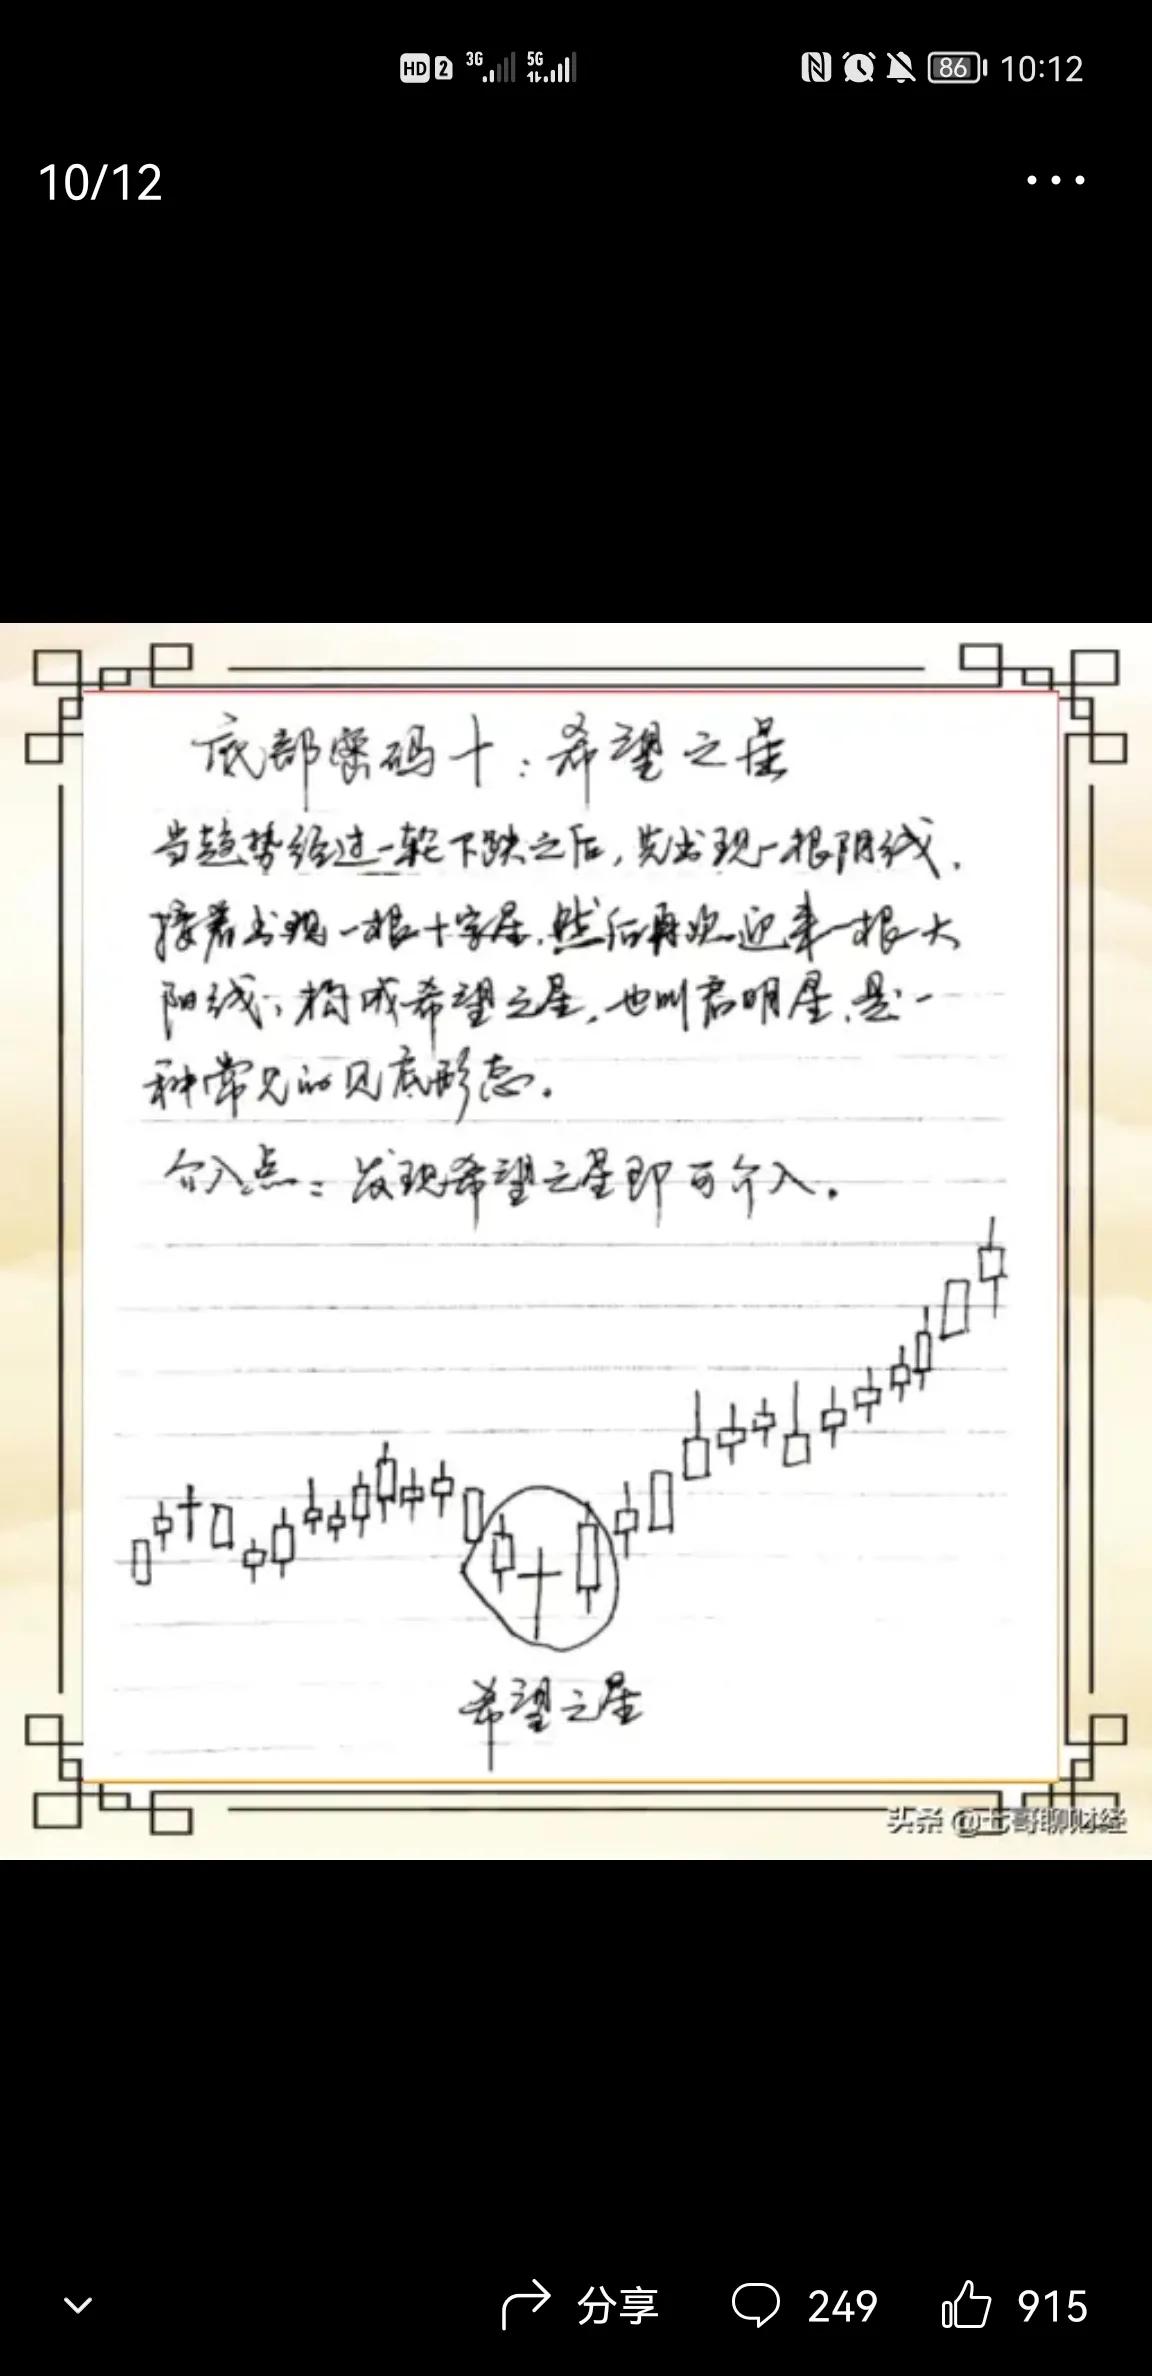 HD 2 3G 5G 86 10:12
10/12
底部密码十：希望之星
当趋势经过一轮下跌之后，先出现一根阴线，
接着出现一根十字星，然后再次迎来一根大
阳线，构成希望之星，也叫启明星，是一
种常见的见底形态。
介入点：发现希望之星即可介入。
希望之星
头条 @七哥聊财经
分享 249 915